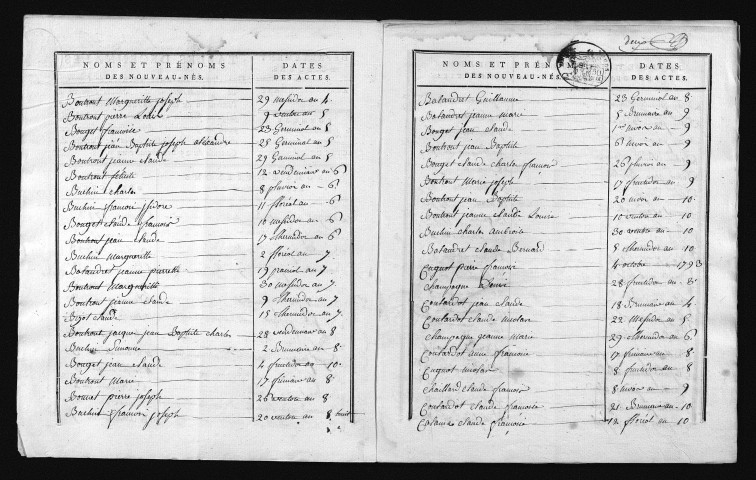 NOMS ET PRÉNOMS
DES NOUVEAU-NÉS.
DATES
DES ACTES.
Boutront Margueritte joseph 29 messidor an 4
Boutront pierre Louis 9 ventose an 5
Bouget françoise 23 Germinal an 5
Boutront jean Baptiste joseph alexandre 25 Germinal an 5
Boutront jeanne claude 29 Germinal an 5
Boutront 12 vendemiaire an 6
Buchin charles 8 pluviose an 6
Buchin françois isidore 11 floréal an 6
Bouget claude françois 16 messidor an 6
Boutront jean claude 17 thermidor an 6
Buchin Margueritte 2 floréal an 7
Balandret jeanne pierrette 19 prairial an 7
Boutront Margueritte 30 messidor an 7
Boutront jeanne claude 9 thermidor an 7
Bizot claude 15 thermidor an 7
Boutront jacque jean Baptiste charles 28 vendemiaire an 8
Buchin Simonne 2 Brumaire an 8
Bouget jean claude 4 fructidor an 10
Boutront Marie 17 frimaire an 8
Bouvret pierre joseph 26 ventose an 8
Buchin françois joseph 20 ventose an 8
NOMS ET PRÉNOMS
DES NOUVEAU-NÉS.
DATES
DES ACTES.
Balandret Guillaume 23 Germinal an 8
Balandret jeanne marie 5 Brumaire an 9
Bouget jean claude 1er nivose an 9
Boutront jean Baptiste 6 nivose an 9
Bouget claude charles françois 26 pluviose an 9
Boutront Marie joseph 17 fructidor an 9
Boutront jean Baptiste 20 nivose an 10
Boutront jeanne claude Louise 10 ventose an 10
Buchin charles Ambroise 30 ventose an 10
Balandret claude Bernard 5 thermidor an 10
Cugnot pierre françois 4 octobre 1793
Champagne 28 fructidor an 8
Coutardot jean claude 18 Brumaire an 4
Coutardot claude nicolas 22 Messidor an 5
Champagne jeanne marie 29 thermidor an 6
Coutardot anne françoise 17 frimaire an 8
Cugnot nicolas 8 fructidor an 8
Chaillard claude françois 8 nivose an 9
Coutardot claude françoise 21 Brumaire an 10
claude françoise 12 floréal an 10